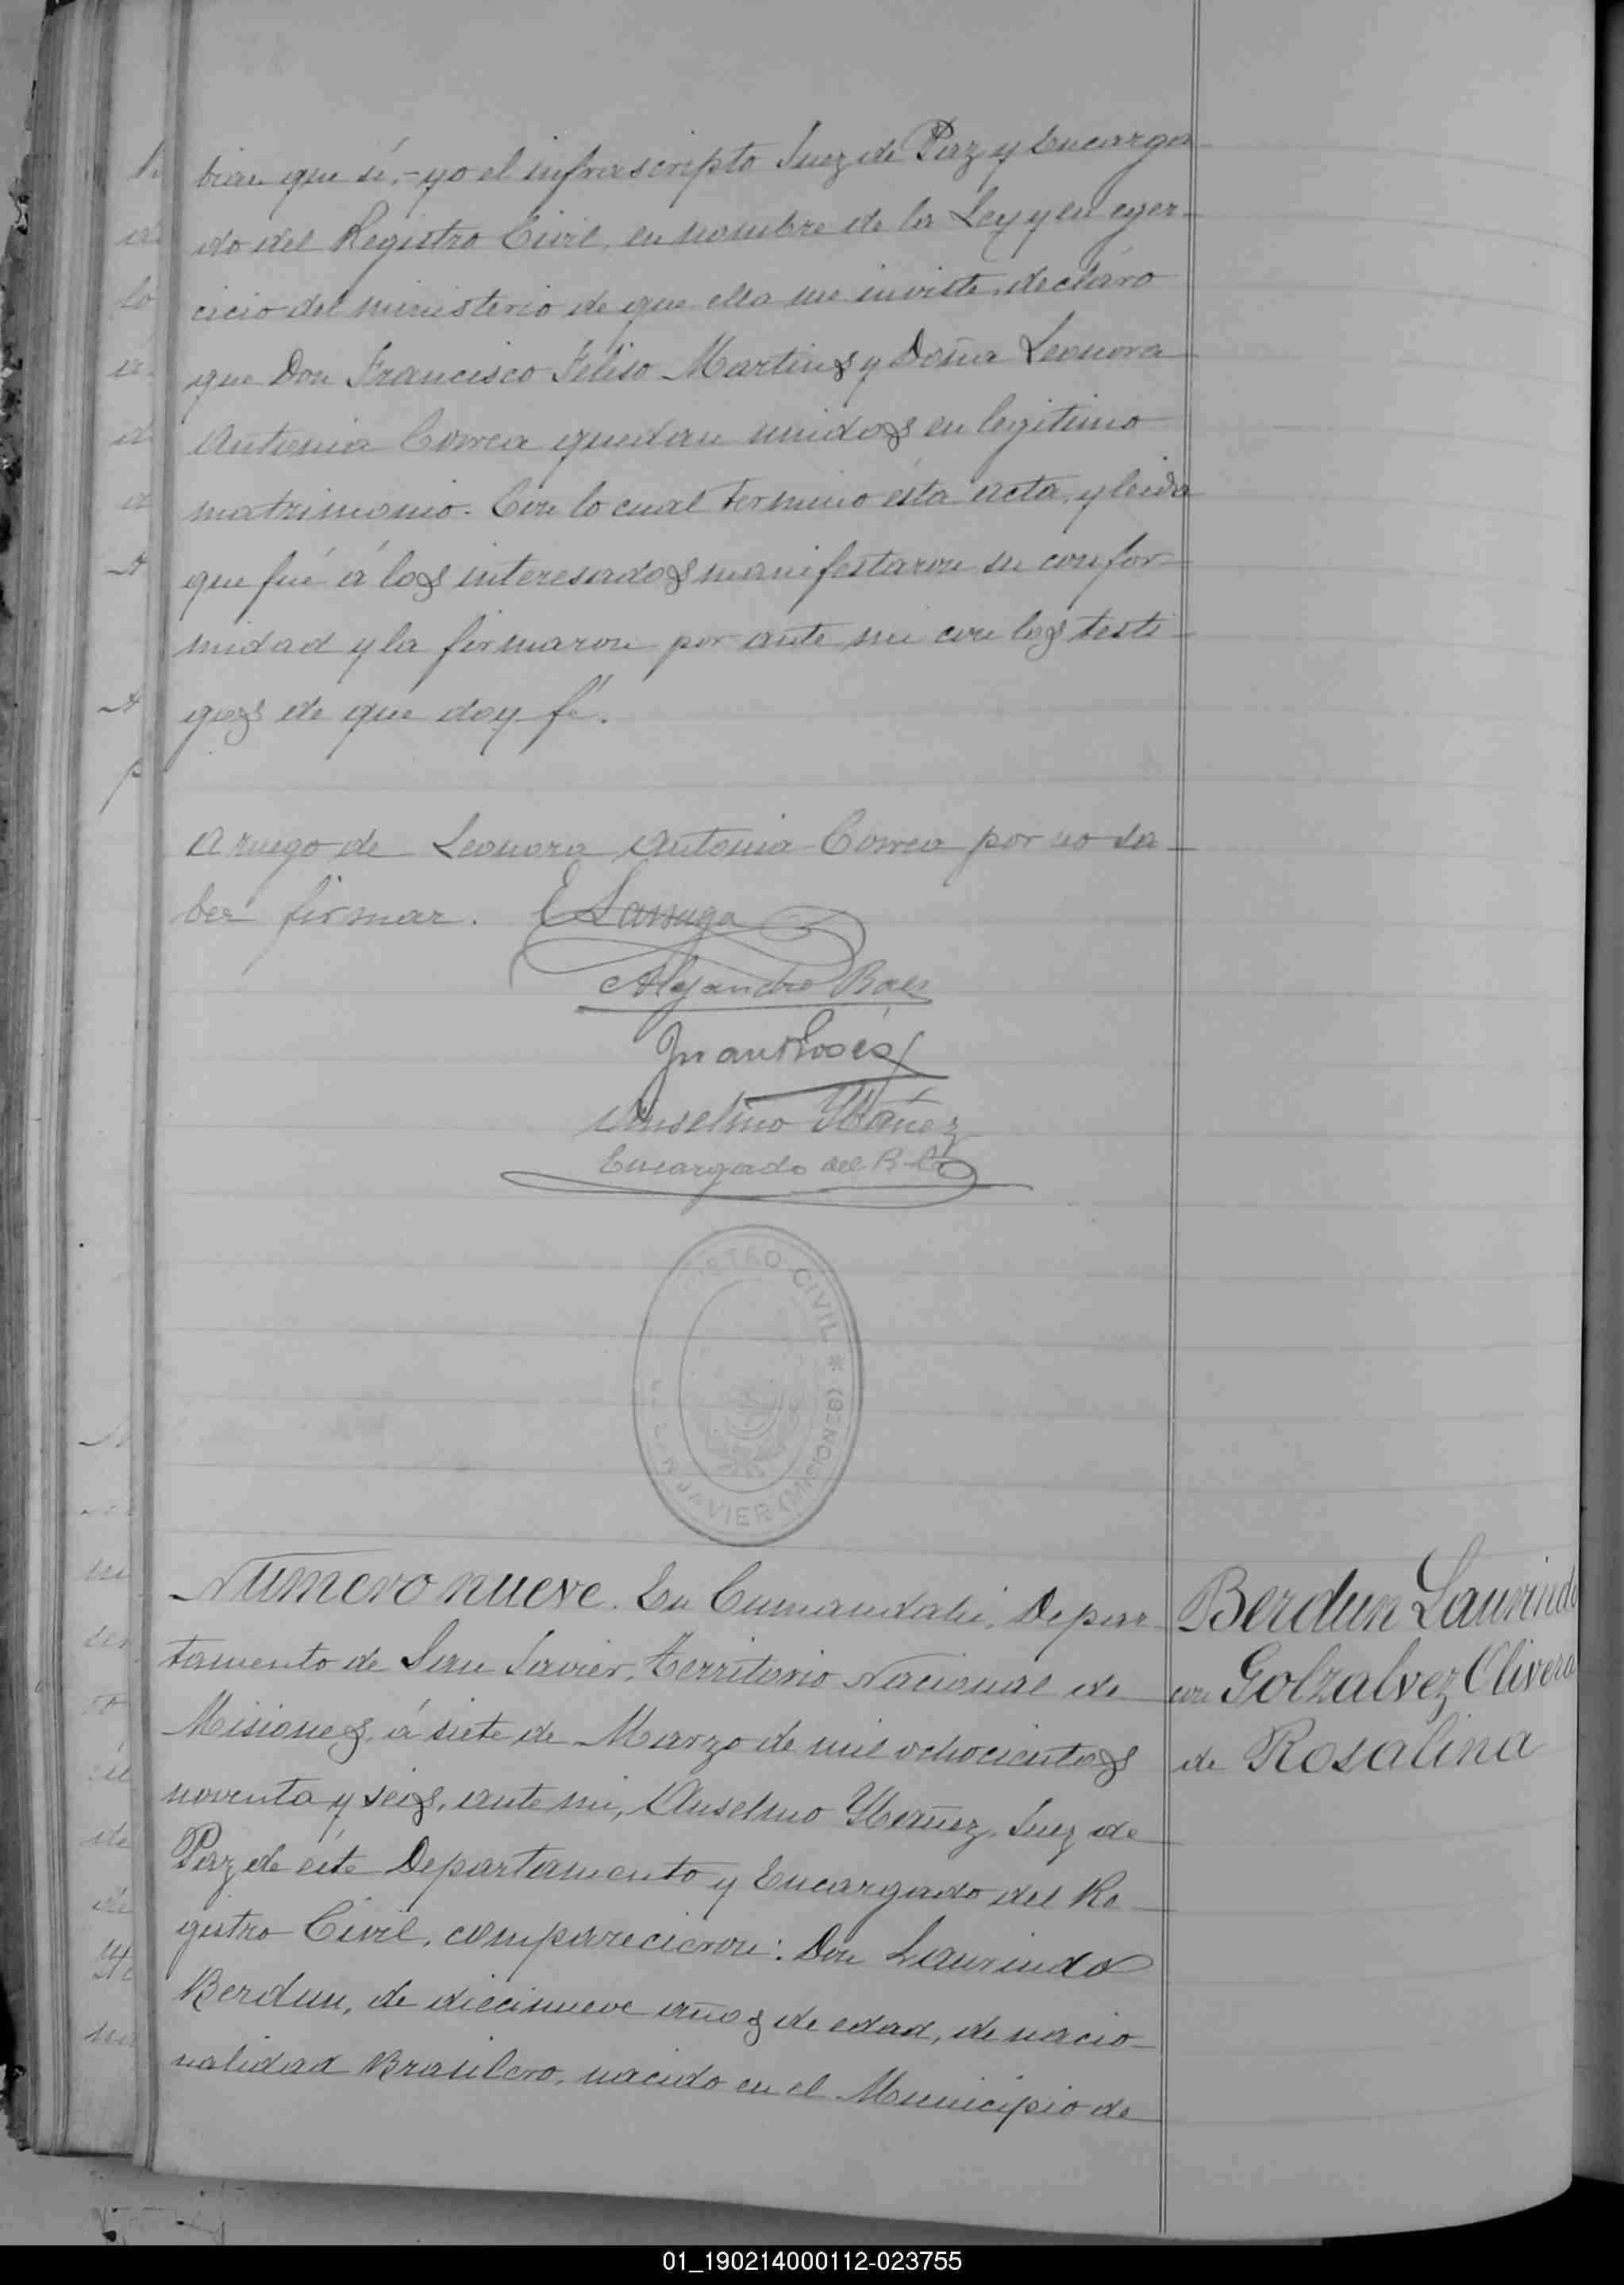 bian que sí,- yo el infrascripto Juez de Paz y Encarga-
do del Registro Civil, en nombre de la Ley y en eger-
cicio del ministerio de que ella me inviste, declaro
que Don Francisco Feliso Martins y Doña Leonora
Antonia Correa quedan unidos en legitimo
matrimonio. Con lo cual terminó ésta acta, y leida
que fué á los interesados manifestaron su confor-
midad y la firmaron por ante mi con los testi-
gos de que doy fé.
A ruego de Leonora Antonia Correa por no sa-
ber firmar. E Larruga
Alejandro Baez
Juan Rosés
Anselmo Ybañez
Encargado del R. C.
REGISTRO CIVIL * SAN JAVIER (MISIONES)
Numero nueve. En Cumandahi, Depar-
tamento de San Javier, Territorio Nacional de
Misiones, á siete de Marzo de mil ochocientos
noventa y seis, ante mi, Anselmo Ybañez, Juez de
Paz de éste Departamento y Encargado del Re-
gistro Civil, comparecieron: Don Laurindo
Berdun, de diecinueve años de edad, de nacio-
nalidad Brasilero, nacido en el Municipio de
Berdun Laurindo
con Golzalvez Olivera
de Rosalina
01_190214000112-023755